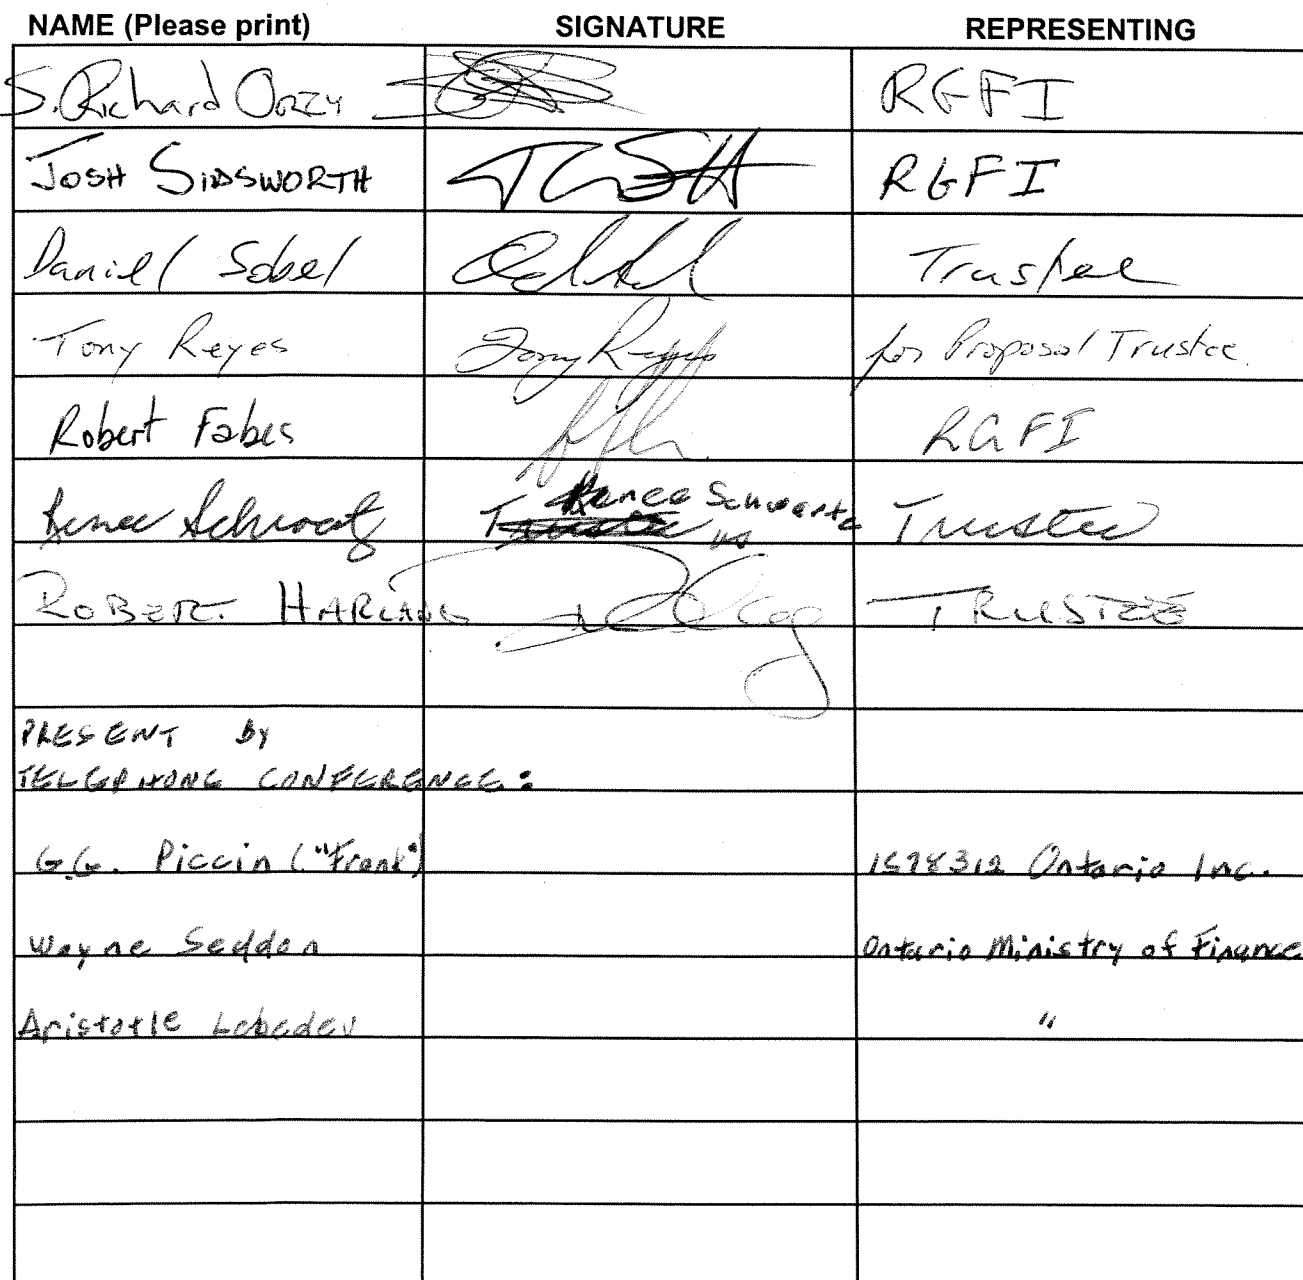 NAME (Please print) SIGNATURE REPRESENTING
S. Richard Orzy RGFI
Josh Sidsworth RGFI
Daniel Sobel Trustee
Tony Reyes Tony Reyes for Proposal Trustee
Robert Fabes RGFI
Renee Schwartz Trustee Renee Schwartz Trustee
ROBERT HARLANG TRUSTEE
PRESENT BY
TELEPHONE CONFERENCE:
G.G. Piccin ("Frank") 1598312 Ontario Inc.
Wayne Seddon Ontario Ministry of Finance
Aristotle Lebedev "